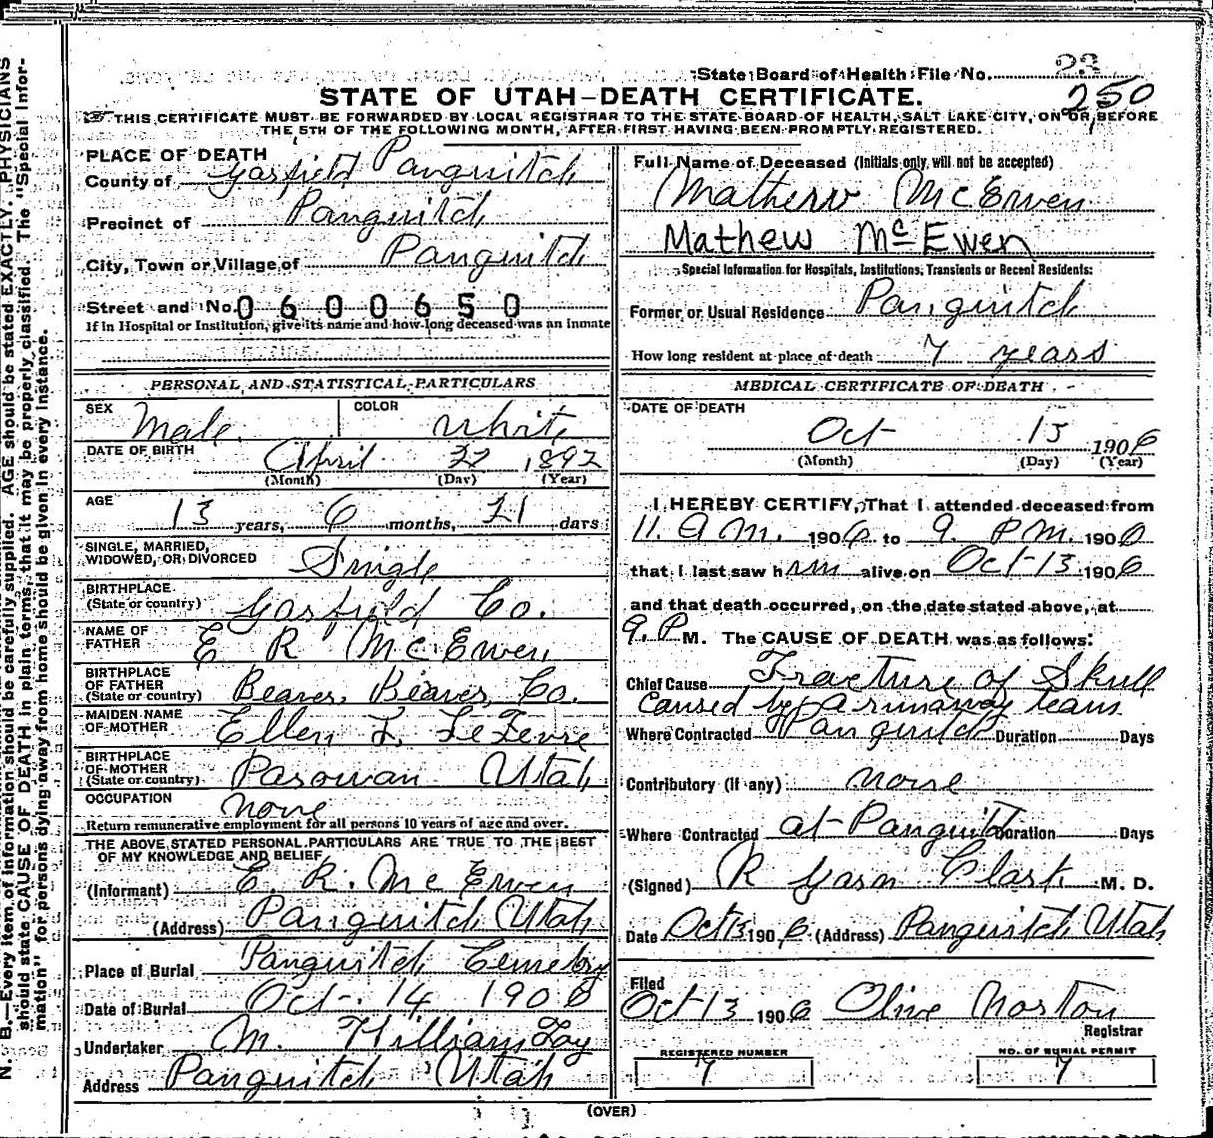 State Board of Health File No. 23
250
STATE OF UTAH–DEATH CERTIFICATE.
THIS CERTIFICATE MUST BE FORWARDED BY LOCAL REGISTRAR TO THE STATE BOARD OF HEALTH, SALT LAKE CITY, ON OR BEFORE
THE 5TH OF THE FOLLOWING MONTH, AFTER FIRST HAVING BEEN PROMPTLY REGISTERED.
PLACE OF DEATH
County of Garfield Panguitch
Precinct of Panguitch
City, Town or Village of Panguitch
Street and No. 0600650
If in Hospital or Institution, give its name and how long deceased was an Inmate
PERSONAL AND STATISTICAL PARTICULARS
SEX Male COLOR White
DATE OF BIRTH April 22, 1892
(Month) (Day) (Year)
AGE 13 years, 6 months, 21 days
SINGLE, MARRIED, WIDOWED, OR DIVORCED Single
BIRTHPLACE (State or country) Garfield Co.
NAME OF FATHER E R McEwen
BIRTHPLACE OF FATHER (State or country) Beaver, Beaver, Co.
MAIDEN NAME OF MOTHER Ellen L. LeFevre
BIRTHPLACE OF MOTHER (State or country) Parowan Utah
OCCUPATION none
Return remunerative employment for all persons 10 years of age and over.
THE ABOVE STATED PERSONAL PARTICULARS ARE TRUE TO THE BEST
OF MY KNOWLEDGE AND BELIEF
(Informant) E. R. McEwen
(Address) Panguitch Utah
Place of Burial Panguitch Cemetery
Date of Burial Oct. 14 1906
Undertaker M.
Address Panguitch Utah
Full Name of Deceased (Initials only, will not be accepted)
Mathew McEwen
Mathew McEwen
Special Information for Hospitals, Institutions, Transients or Recent Residents:
Former or Usual Residence Panguitch
How long resident at place of death 7 years
MEDICAL CERTIFICATE OF DEATH
DATE OF DEATH
Oct 13 1906
(Month) (Day) (Year)
I HEREBY CERTIFY, That I attended deceased from
11. A M. 1906 to 9. P M. 1906
that I last saw him alive on Oct 13 1906
and that death occurred, on the date stated above, at
9. P M. The CAUSE OF DEATH was as follows:
Chief Cause Fracture of Skull
Caused by a runaway team
Where Contracted Panguitch Duration Days
Contributory (if any) none
Where Contracted at Panguitch Duration Days
(Signed) R Garn Clark M. D.
Date Oct 13 1906 (Address) Panguitch Utah
Filed
Oct 13 1906 Olive Norton
Registrar
REGISTERED NUMBER
7
NO. OF BURIAL PERMIT
7
(OVER)
N. B.—Every item of information should be carefully supplied. AGE should be stated EXACTLY. PHYSICIANS
should state CAUSE OF DEATH in plain terms, that it may be properly classified. The "Special Infor-
mation" for persons dying away from home should be given in every instance.